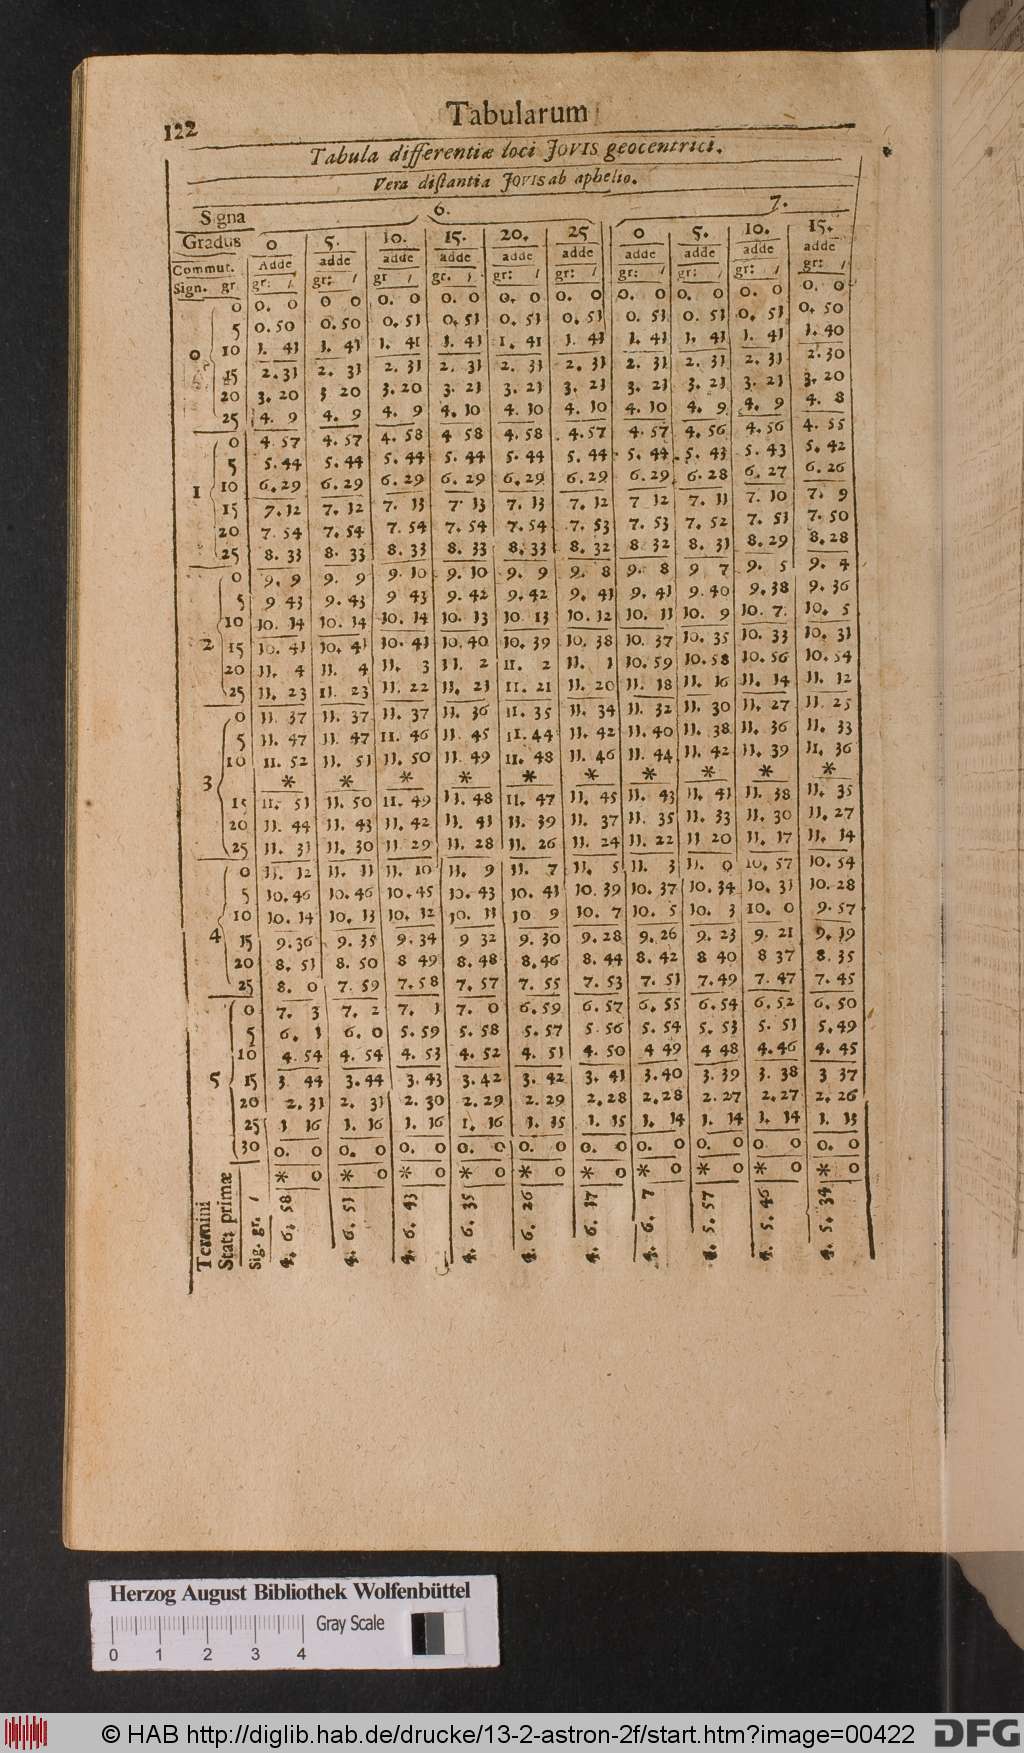 122
Tabularum
Tabula differentiæ loci JOVIS geocentrici.
Vera distantia JOVIS ab aphelio.
Signa 6. 7.
Gradus 0 5. 10. 15. 20. 25 0 5. 10. 15.
Commut. Adde adde adde adde adde adde adde adde adde adde
Sign. gr gr: / gr: / gr / gr. / gr: / gr: / gr: / gr: / gr: / gr: /
0 0. 0 0 0 0. 0 0. 0 0. 0 0. 0 0. 0 0. 0 0. 0 0. 0
5 0.50 0.50 0. 51 0. 51 0. 51 0. 51 0. 51 0. 51 0. 51 0. 50
0 10 1. 41 1. 41 1. 41 1. 41 1. 41 1. 41 1. 41 1. 41 1. 41 1. 40
15 2.31 2. 31 2. 31 2. 31 2. 31 2. 31 2. 31 2. 31 2. 31 2.30
20 3. 20 3 20 3.20 3. 21 3. 21 3. 21 3. 21 3. 21 3. 21 3. 20
25 4. 9 4. 9 4. 9 4. 10 4. 10 4. 10 4. 10 4. 9 4. 9 4. 8
0 4 57 4. 57 4. 58 4 58 4. 58 4.57 4. 57 4. 56 4.56 4. 55
5 5.44 5.44 5.44 5. 44 5. 44 5. 44 5. 44 5. 43 5. 43 5. 42
1 10 6.29 6. 29 6. 29 6. 29 6.29 6.29 6.29 6.28 6. 27 6.26
15 7.12 7. 12 7. 13 7. 13 7. 13 7. 12 7 12 7. 11 7. 10 7. 9
20 7 54 7. 54 7. 54 7. 54 7.54 7. 53 7. 53 7. 52 7. 51 7.50
25 8. 33 8. 33 8. 33 8. 33 8. 33 8. 32 8 32 8. 31 8.29 8.28
0 9. 9 9. 9 9. 10 9. 10 9. 9 9. 8 9. 8 9 7 9. 5 9. 4
5 9 43 9. 43 9 43 9. 42 9.42 9. 41 9. 41 9.40 9.38 9. 36
10 10. 14 10. 14 10. 14 10. 13 10 13 10. 12 10. 11 10. 9 10. 7 10. 5
2 15 10. 41 10. 41 10. 41 10. 40 10. 39 10. 38 10. 37 10. 35 10. 33 10. 31
20 11. 4 11. 4 11. 3 11. 2 11. 2 11. 1 10. 59 10.58 10. 56 10.54
25 11. 23 11. 23 11. 22 11. 21 11. 21 11. 20 11. 18 11. 16 11. 14 11. 12
0 11. 37 11. 37 11. 37 11. 36 11. 35 11. 34 11. 32 11. 30 11. 27 11. 25
5 11. 47 11. 47 11. 46 11. 45 11.44 11. 42 11. 40 11. 38 11. 36 11. 33
10 11. 52 11. 51 11. 50 11. 49 11. 48 11. 46 11. 44 11. 42 11. 39 11. 36
3 * * * * * * * * * *
15 11. 51 11. 50 11. 49 11. 48 11. 47 11. 45 11. 43 11. 41 11. 38 11. 35
20 11. 44 11. 43 11. 42 11. 41 11. 39 11. 37 11. 35 11. 33 11. 30 11. 27
25 11. 31 11. 30 11 29 11. 28 11. 26 11. 24 11. 22 11 20 11. 17 11. 14
0 11. 12 11. 11 11. 10 11. 9 11. 7 11. 5 11. 3 11. 0 10. 57 10. 54
5 10.46 10. 46 10. 45 10. 43 10. 41 10. 39 10. 37 10. 34 10. 31 10. 28
10 10. 14 10. 13 10. 12 10. 11 10 9 10. 7 10. 5 10. 3 10. 0 9. 57
4 15 9.36 9. 35 9. 34 9 32 9. 30 9.28 9. 26 9. 23 9. 21 9. 19
20 8. 51 8. 50 8 49 8. 48 8.46 8. 44 8. 42 8 40 8 37 8. 35
25 8. 0 7. 59 7.58 7. 57 7. 55 7. 53 7. 51 7.49 7. 47 7. 45
0 7. 3 7. 2 7. 1 7. 0 6.59 6.57 6. 55 6.54 6. 52 6. 50
5 6. 1 6. 0 5. 59 5. 58 5. 57 5 56 5. 54 5. 53 5. 51 5.49
10 4 54 4. 54 4. 53 4. 52 4. 51 4. 50 4 49 4 48 4.46 4. 45
5 15 3 44 3.44 3. 43 3.42 3. 42 3. 41 3.40 3.39 3. 38 3 37
20 2.31 2. 31 2. 30 2.29 2. 29 2.28 2.28 2. 27 2.27 2. 26
25 1 16 1. 16 1. 16 1. 16 1. 15 1. 15 1. 14 1. 14 1. 14 1. 13
30 0. 0 0. 0 0. 0 0. 0 0. 0 0. 0 0. 0 0. 0 0 0 0. 0
* 0 * 0 * 0 * 0 * 0 * 0 * 0 * 0 * 0 * 0
Termini
Stat: primæ
Sig. gr. /
4. 6. 58 4. 6. 53 4. 6. 43 4. 6. 35 4. 6. 26 4. 6. 17 4. 6. 7 4. 5. 57 4. 5. 46 4. 5. 34
Herzog August Bibliothek Wolfenbüttel
Gray Scale
0 1 2 3 4
© HAB http://diglib.hab.de/drucke/13-2-astron-2f/start.htm?image=00422
DFG